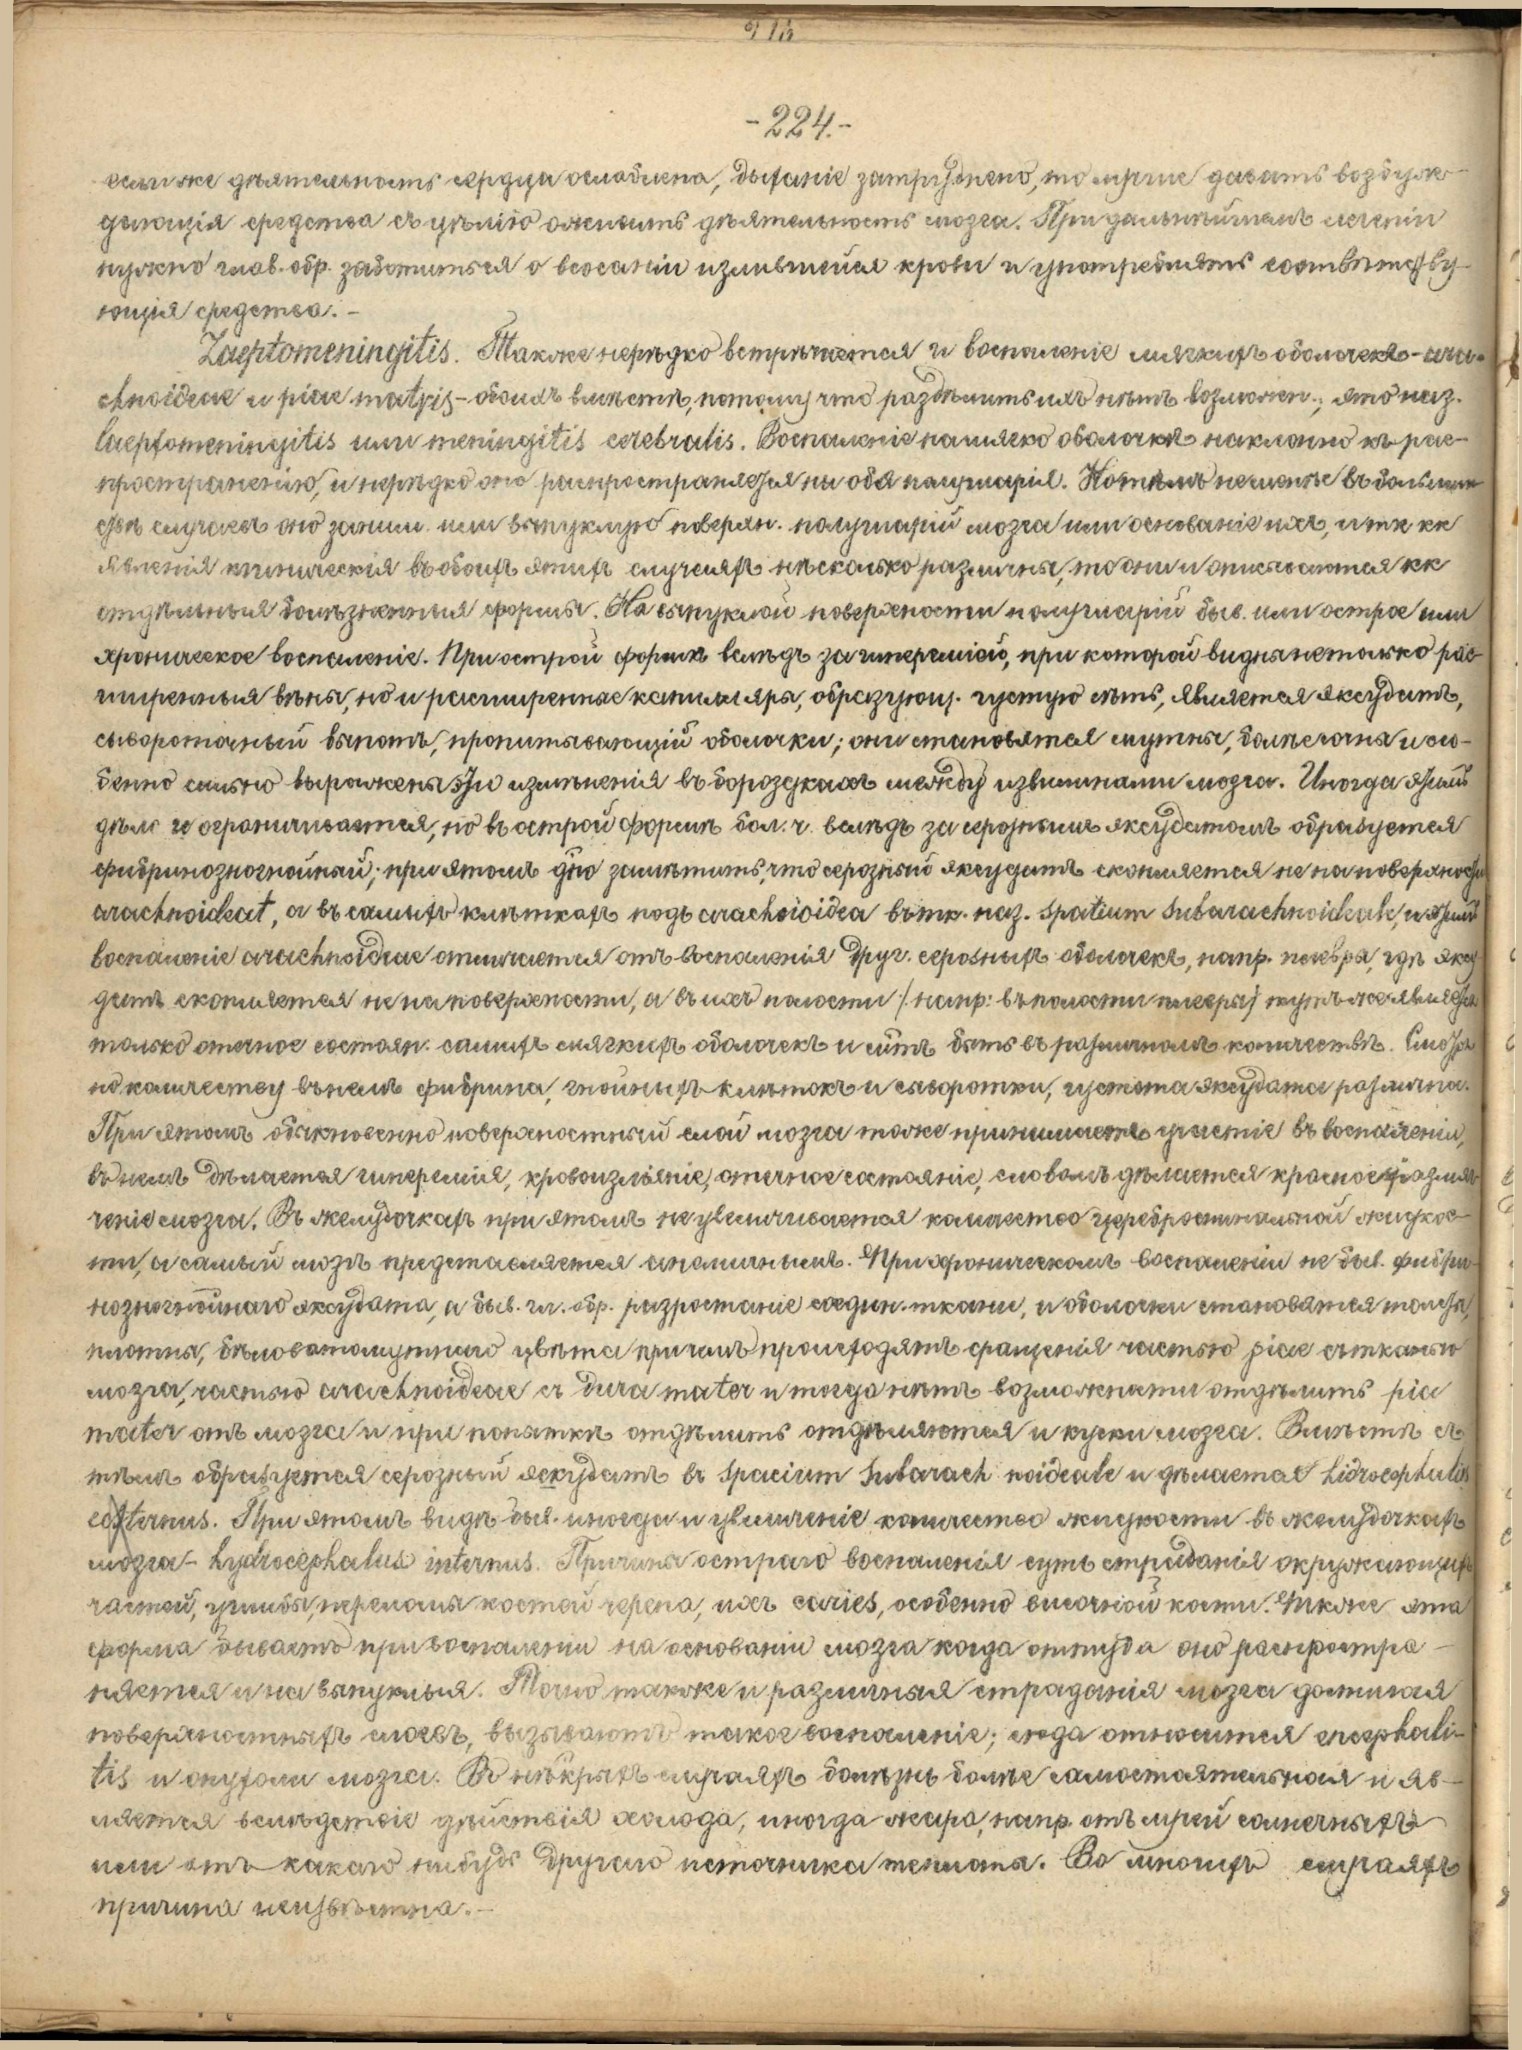 -224.-
если же дѣятельность сердца ослаблена, дыханіе затруднено, то лучше давать возбуж-
дающія средства съ цѣлію оживить дѣятельность мозга. При дальнѣйшемъ леченіи
нужно глав. обр. заботиться о всосаніи излившейся крови и употреблять соотвѣтству-
ющія средства.-
Laeptomeningitis. Также нерѣдко встрѣчается и воспаленіе мягкихъ оболочекъ - ara-
chnoideae и piae matris - обоихъ вмѣстѣ, потому что раздѣлить ихъ нѣтъ возможн.; это наз.
laeptomeningitis или meningitis cerebralis. Воспаленіе на мягкой оболочкѣ наклонно къ рас-
пространенію, и нерѣдко оно распространяется на оба полушарія. Но тѣмъ не менѣе въ большин-
ствѣ случаевъ оно заним. или выпуклую поверхн. полушарій мозга или основаніе ихъ, и тк кк
явленія клиническія въ обоихъ этихъ случаяхъ нѣсколько различны, то они и описываются кк
отдѣльныя болѣзненныя формы. На выпуклой поверхности полушарій быв. или острое или
хроническое воспаленіе. При острой формѣ вслѣдъ за гипереміей, при которой видны не только рас-
ширенныя вѣны, но и расширенные капилляры, образующ. густую сѣть, является эксудатъ,
сывороточный выпотъ, пропитывающій оболочки; они становятся мутны, бѣлесочны и осо-
бенно сильно выражены эти измѣненія въ бороздкахъ между извилинами мозга. Иногда этимъ
дѣло и ограничивается, но въ острой формѣ бол. ч. вслѣдъ за серознымъ эксудатомъ образуется
фибринозногнойный; при этомъ дно замѣтить, что серозный эксудатъ скопляется не на поверхности
arachnoideat, а въ самыхъ клѣткахъ подъ arachoioidea въ тк. наз. spatium subarachnoideale, и этимъ
воспаленіе arachnoideae отличается отъ воспаленія друг. серозныхъ оболочекъ, напр. плевры, гдѣ эксу-
датъ скопляется не на поверхности, а въ ихъ полости /напр: въ полости плевры/ тутъ же является
только отечное состоян. самихъ мягкихъ оболочекъ и мтъ быть въ различномъ количествѣ. Смотря
по количеству въ немъ фибрина, гнойныхъ клѣтокъ и сыворотки, густота эксудата различна.
При этомъ обыкновенно поверхностный слой мозга тоже принимаетъ участіе въ воспаленіи,
въ немъ дѣлается гиперемія, кровоизліяніе, отечное состояніе, словомъ дѣлается красное размяг-
ченіе мозга. Въ желудочкахъ при этомъ не увеличивается количество цереброспинальной жидкос-
ти, а самый мозгъ представляется анемичнымъ. При хроническомъ воспаленіи не быв. фибри-
нозногнойнаго эксудата, а быв. гл. обр. разростаніе соедин. ткани, и оболочки становятся толсты,
плотны, бѣловатомутнаго цвѣта причемъ происходятъ сращенія частью piae съ тканью
мозга, частью arachnoideae съ dura mater и тогда нѣтъ возможности отдѣлить pia
mater отъ мозга и при попыткѣ отдѣлить отдѣляются и куски мозга. Вмѣстѣ съ
тѣмъ образуется серозный эскудатъ въ spacium subarach noideale и дѣлается hidrocephalus
externus. При этомъ видѣ быв. иногда и увеличеніе количество жидкости въ желудочкахъ
мозга - hydrocephalus internus. Причина остраго воспаленія суть страданія окружающихъ
частей, ушибы, переломы костей черепа, ихъ caries, особенно височной кости. Также эта
форма бываетъ при воспаленіи на основаніи мозга когда оттуда оно распростра-
няется и на выпуклыя. Точно также и различныя страданія мозга достигая
поверхностныхъ слоевъ, вызываютъ такое воспаленіе; сюда относится encephali-
tis и опухоли мозга. Въ нѣкрыхъ случаяхъ болѣзнь болѣе самостоятельная и яв-
ляется вслѣдствіе дѣйствія холода, иногда жара, напр. отъ лучей солнечныхъ
или отъ какаго нибудь другаго источника теплота. Во многихъ случаяхъ
причина неизвѣстна.-